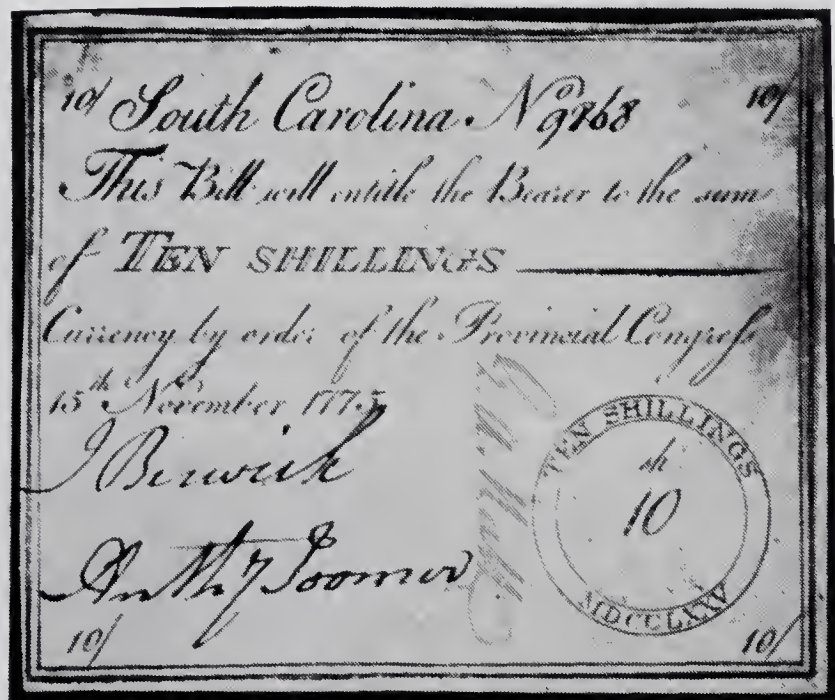 10/ South Carolina. No 9868 10/
This Bill will entitle the Bearer to the sum
of TEN SHILLINGS
Currency by order of the Provincial Congress
15th November 1775
J Berwick
Anthy Toomer
TEN SHILLINGS
sh
10
MDCCLXXV
10/ 10/